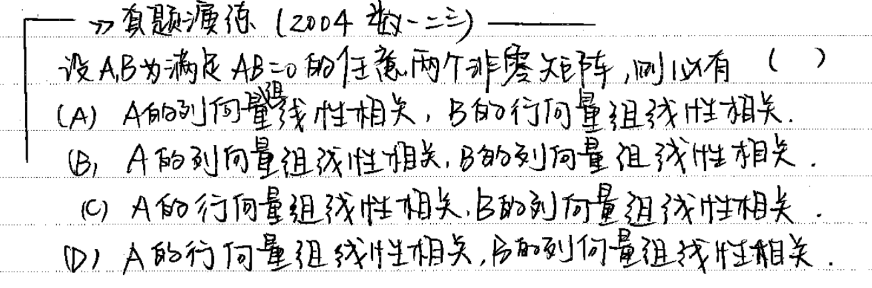 >> 真题演练 (2004 数一二三)
设A,B为满足 AB=0 的任意两个非零矩阵,则必有 ( )
(A) A的列向量组线性相关, B的行向量组线性相关.
(B) A的列向量组线性相关,B的列向量组线性相关.
(C) A的行向量组线性相关,B的列向量组线性相关.
(D) A的行向量组线性相关,B的列向量组线性相关.